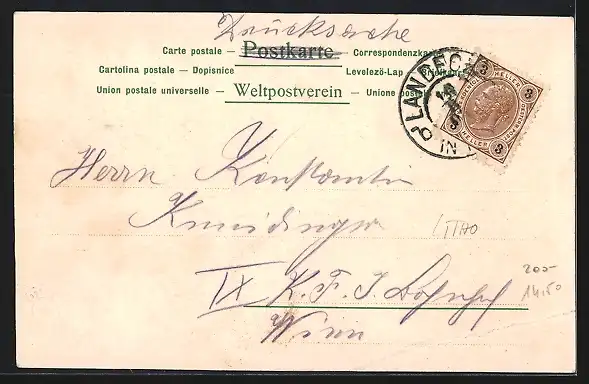 Drucksache
Carte postale — Postkarte — Correspondenzkarte
Cartolina postale — Dopisnice
Levelező-Lap — Briefkaart
Union postale universelle — Weltpostverein — Unione postale
LANDECK
IN
3 HELLER 3
3 HELLER 3
Herrn Konstantin
Kneidinger
LITHO
IX K. F. J. Bahnhof
Wien
200-
14,50